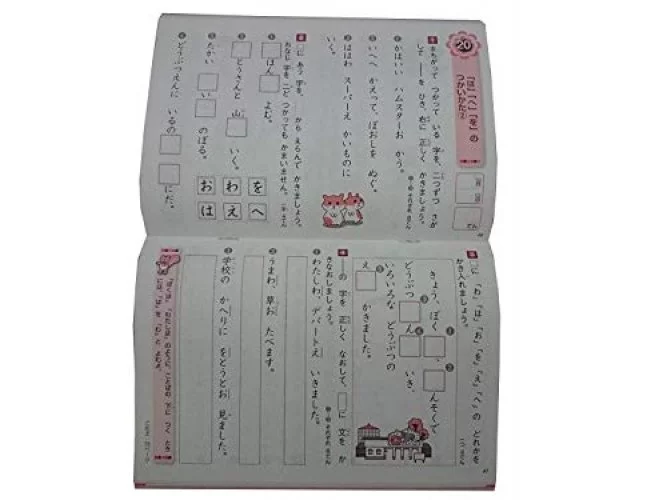 20
「は」「へ」「を」の
つかいかた②
月
日
てん
まちがって つかって いる 字を、二つずつ さが
して ――を ひき、右に 正しく かきましょう。
かはいい ハムスターお かう。
いへへ かえって、ぼおしを ぬぐ。
ははわ スーパーえ かいものに
いく。
□に あう 字を、 から えらんで かきましょう。
おなじ 字を 二ど つかっても かまいません。
① □ほん□ よむ。
② □とうさんと 山□ いく。
③ たかい □□ のぼる。
④ どうぶつえんに いるの□ □にだ。
を へ
わ え
お は
□に 「わ」「は」「お」「を」「え」「へ」の どれかを
かき入れましょう。
きょう、ぼく□、□んそくで
どうぶつ□ん□ いき、
いろいろな どうぶつの
え□ かきました。
――の 字を 正しく なおして、□に 文を か
きなおしましょう。
① わたしわ、デパートえ いきました。
② うまわ、草お たべます。
③ 学校の かへりに をとうとお 見ました。